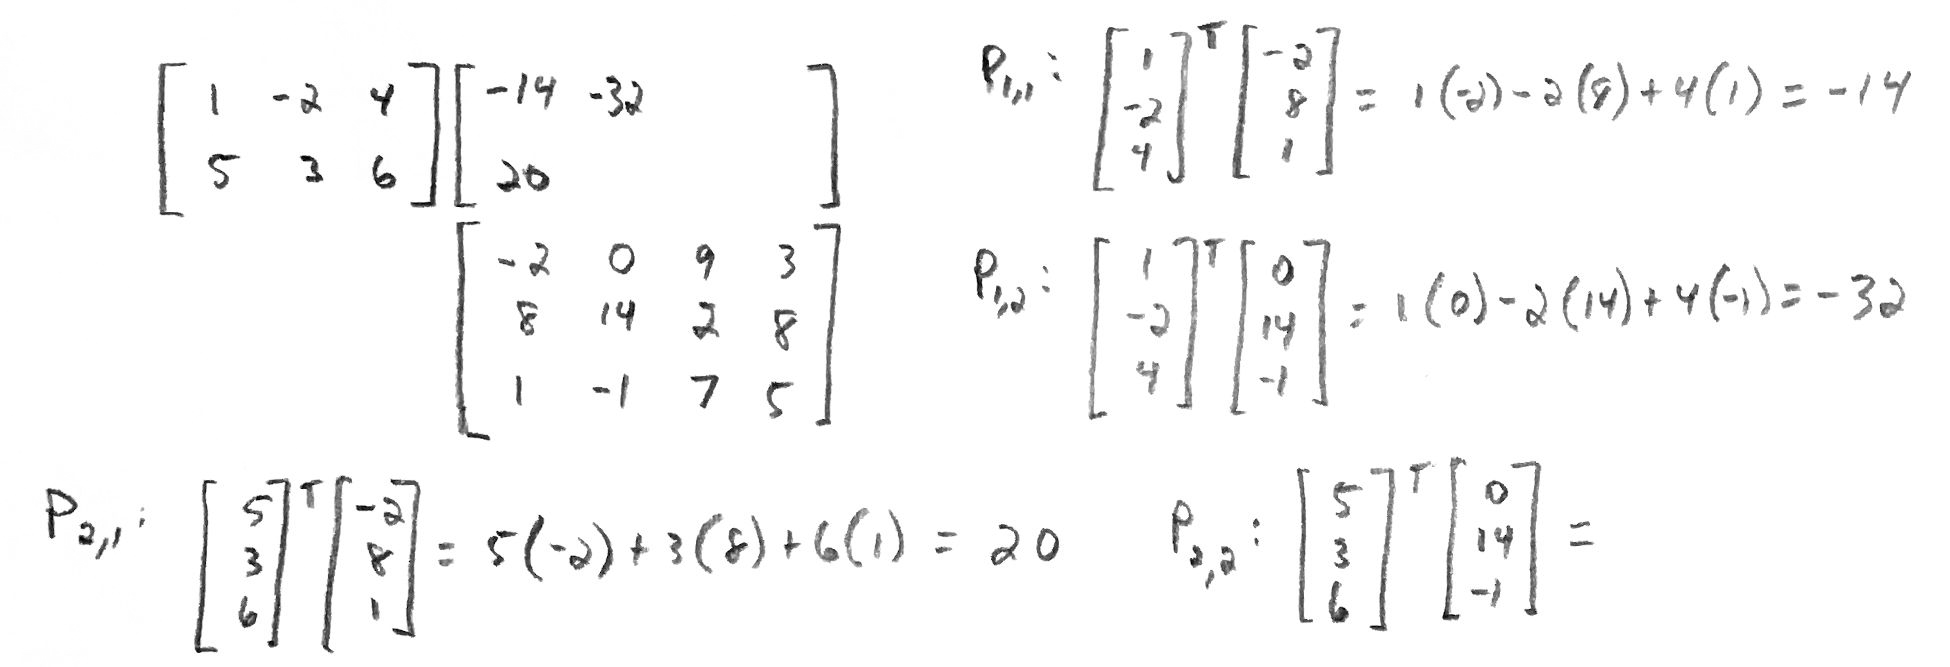 [ 1 -2 4 ] [ -14 -32 ]
[ 5 3 6 ] [ 20 ]
[ -2 0 9 3 ]
[ 8 14 2 8 ]
[ 1 -1 7 5 ]
P1,1: [ 1 -2 4 ]^T [ -2 8 1 ] = 1(-2)-2(8)+4(1) = -14
P1,2: [ 1 -2 4 ]^T [ 0 14 -1 ] = 1(0)-2(14)+4(-1) = -32
P2,1: [ 5 3 6 ]^T [ -2 8 1 ] = 5(-2)+3(8)+6(1) = 20
P2,2: [ 5 3 6 ]^T [ 0 14 -1 ] =